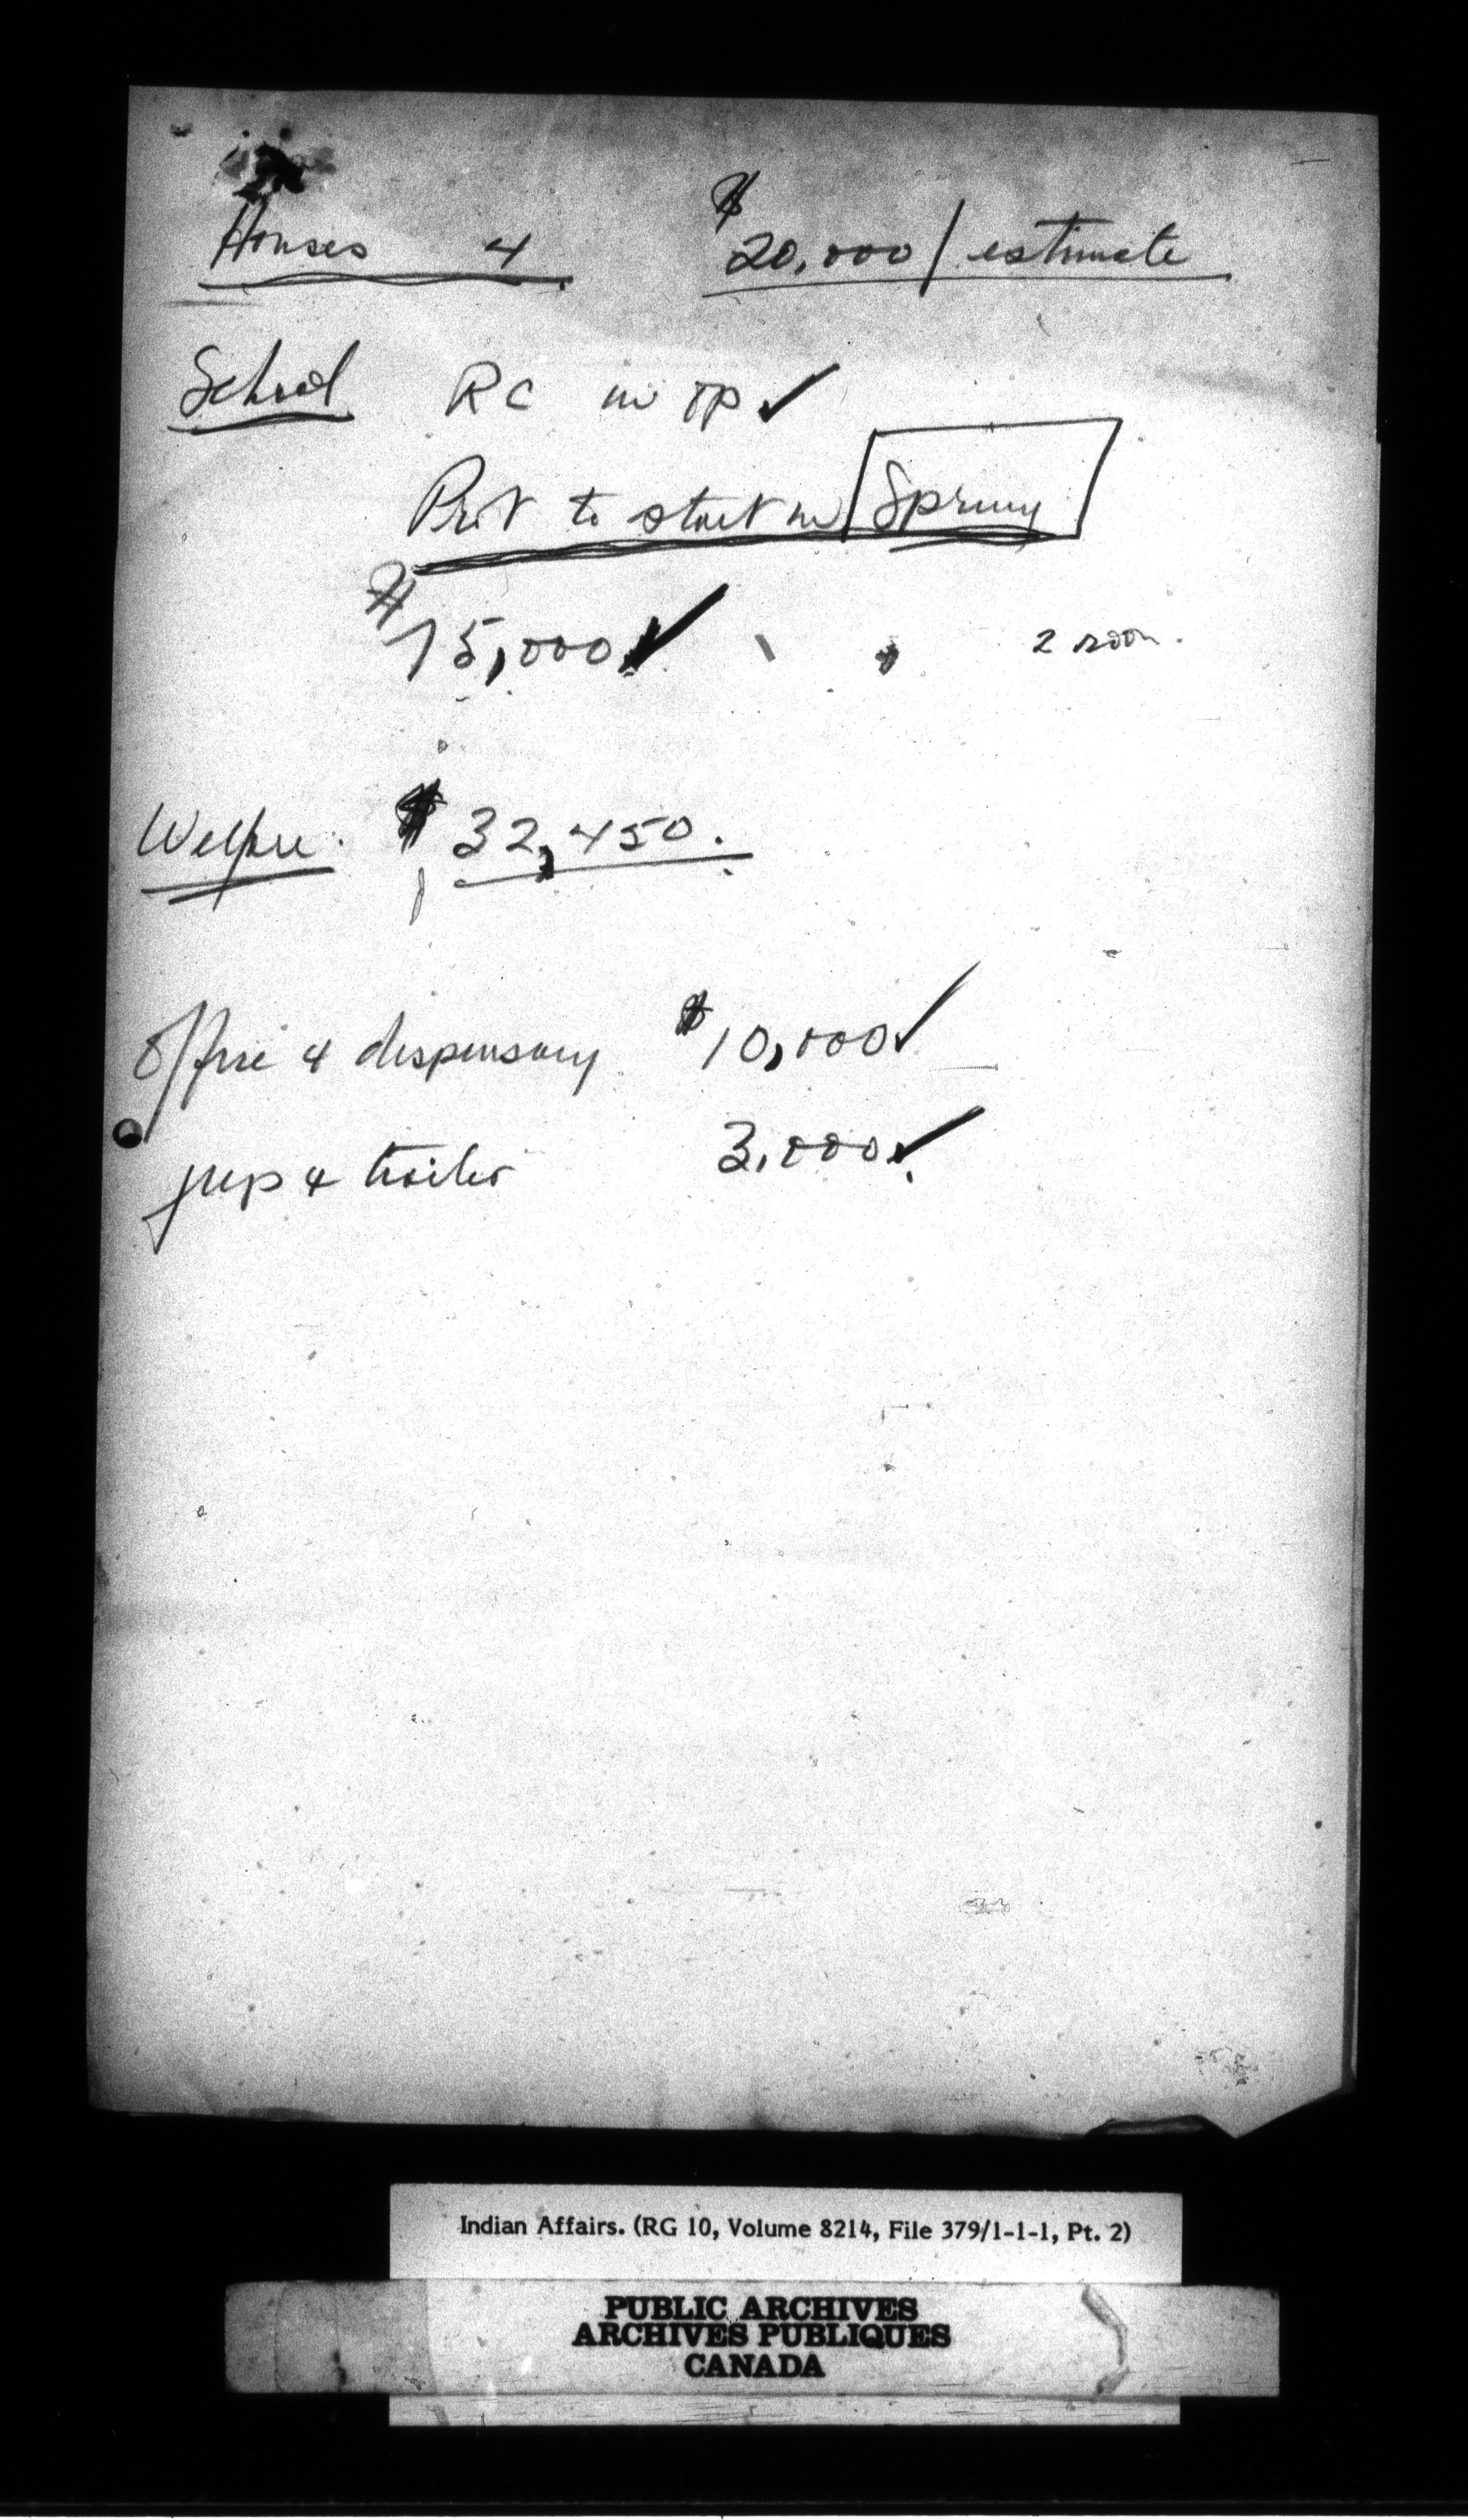 Houses 4 $20,000/ estimate
School RC in op ✓
Prot to start in Spring
$15,000 ✓ 2 room.
Welfare. $32,450.
Office & dispensary $10,000 ✓
jeep & trailer 3,000 ✓
Indian Affairs. (RG 10, Volume 8214, File 379/1-1-1, Pt. 2)
PUBLIC ARCHIVES
ARCHIVES PUBLIQUES
CANADA